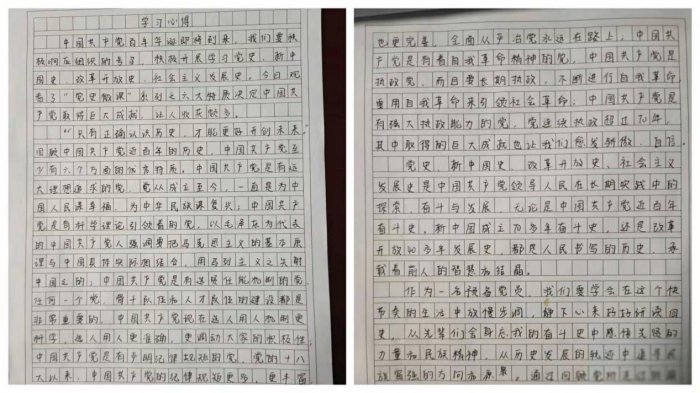 学习心得
中国共产党百年华诞即将到来，我们要积
极响应组织的号召，积极开展学习党史、新中
国史、改革开放史、社会主义发展史。今日观
看了“党史微课”系列之六大特质决定中国共
产党取得巨大成就，让人收获颇多。
“只有正确认识历史，才能更好开创未来
回顾中国共产党近百年的历史，中国共产党至
少有六个方面的优秀特质。中国共产党是有远
大理想追求的党。党从成立至今，一直是为中
国人民谋幸福、为中华民族谋复兴；中国共产
党是有科学理论引领着的党，以毛泽东为代表
的中国共产党人强调要把马克思主义的基本原
理与中国具体实际相结合，用马列主义之矢射
中国之的；中国共产党是有选贤任能机制的党
任何一个党，骨干队伍和人才队伍的建设都是
非常重要的。中国共产党现在选人用人机制更
科学，选人用人更准确，更调动大家的积极性
中国共产党是有严明纪律规矩的党。党的十八
大以来，中国共产党的纪律规矩更多，更丰富
也更完善，全面从严治党永远在路上；中国共
产党是有着自我革命精神的党，中国共产党是
执政党，而且要长期执政，不断进行自我革命
要用自我革命来引领社会革命；中国共产党是
有强大执政能力的党，党连续执政超过70年，
其中取得的巨大成就也让我们愈发骄傲、自信
党史、新中国史、改革开放史、社会主义
发展史是中国共产党领导人民在长期实践中的
探索、奋斗与发展。无论是中国共产党近百年
奋斗史，新中国成立70多年奋斗史，还是改革
开放40多年发展史，都是人民书写的历史，承
载着前人的智慧和结晶。
作为一名预备党员，我们要学会在这个快
节奏的生活中放慢步调，静下心来巧巧好读回
史，从先辈们舍身忘我的奋斗史中感悟奖励的
力量和民族精神，从历史发展的轨迹中
族富强的方向和原果。通过回顾党